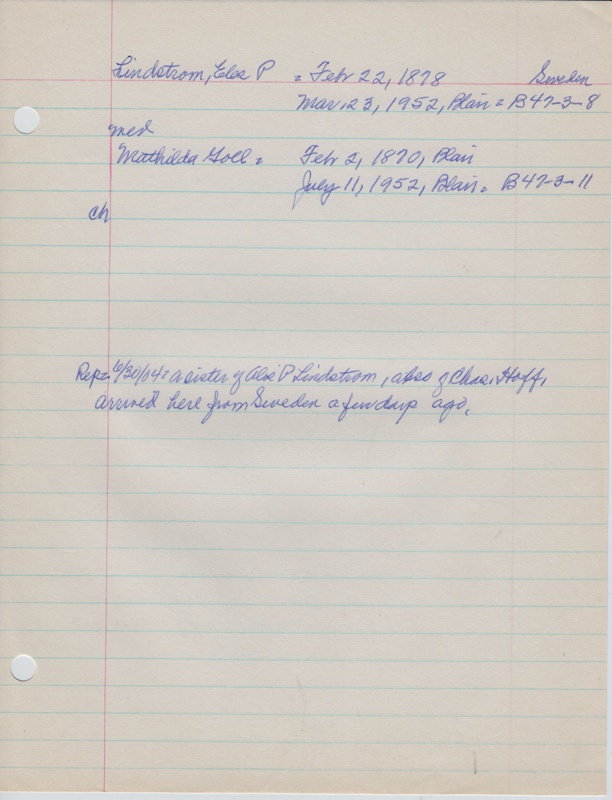 Lindstrom, P = Feb 22, 1878 Sweden
Mar. 23, 1952, Blair = B47-3-8
med
Mathilda = Feb 2, 1870, Blair
July 11, 1952, Blair = B47-3-11
ch
Rep= 6/30/04= a sister of P Lindstrom, also of Chas. Hoff,
arrived here from Sweden a few days ago.